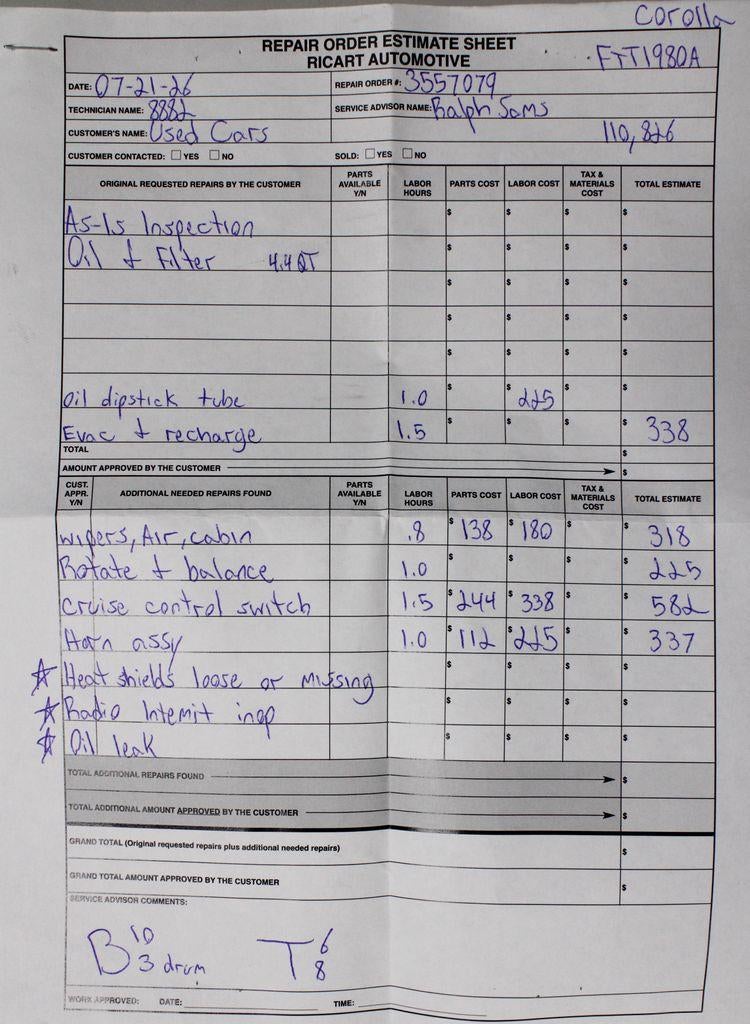 Corolla
REPAIR ORDER ESTIMATE SHEET
RICART AUTOMOTIVE
FTT1980A
DATE: 07-21-26 REPAIR ORDER #: 3557079
TECHNICIAN NAME: 8882 SERVICE ADVISOR NAME: Ralph Sams
CUSTOMER'S NAME: Used Cars 110,826
CUSTOMER CONTACTED: YES NO SOLD: YES NO
ORIGINAL REQUESTED REPAIRS BY THE CUSTOMER PARTS AVAILABLE Y/N LABOR HOURS PARTS COST LABOR COST TAX & MATERIALS COST TOTAL ESTIMATE
As-Is Inspection $ $ $ $
Oil & Filter 4.4 QT $ $ $ $
$ $ $ $
$ $ $ $
$ $ $ $
Oil dipstick tube 1.0 $ $ 225 $ $
Evac & recharge 1.5 $ $ $ $ 338
TOTAL $
AMOUNT APPROVED BY THE CUSTOMER $
CUST. APPR. Y/N ADDITIONAL NEEDED REPAIRS FOUND PARTS AVAILABLE Y/N LABOR HOURS PARTS COST LABOR COST TAX & MATERIALS COST TOTAL ESTIMATE
Wipers, Air, cabin .8 $ 138 $ 180 $ $ 318
Rotate & balance 1.0 $ $ $ $ 225
Cruise control switch 1.5 $ 244 $ 338 $ $ 582
Horn assy 1.0 $ 112 $ 225 $ $ 337
Heat shields loose or missing $ $ $ $
Radio Intemit inop $ $ $ $
Oil leak $ $ $ $
TOTAL ADDITIONAL REPAIRS FOUND $
TOTAL ADDITIONAL AMOUNT APPROVED BY THE CUSTOMER $
GRAND TOTAL (Original requested repairs plus additional needed repairs) $
GRAND TOTAL AMOUNT APPROVED BY THE CUSTOMER $
SERVICE ADVISOR COMMENTS:
B 10 3 drum T 6 8
WORK APPROVED: DATE: TIME: